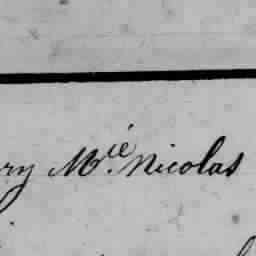 ry M.ié Nicolas